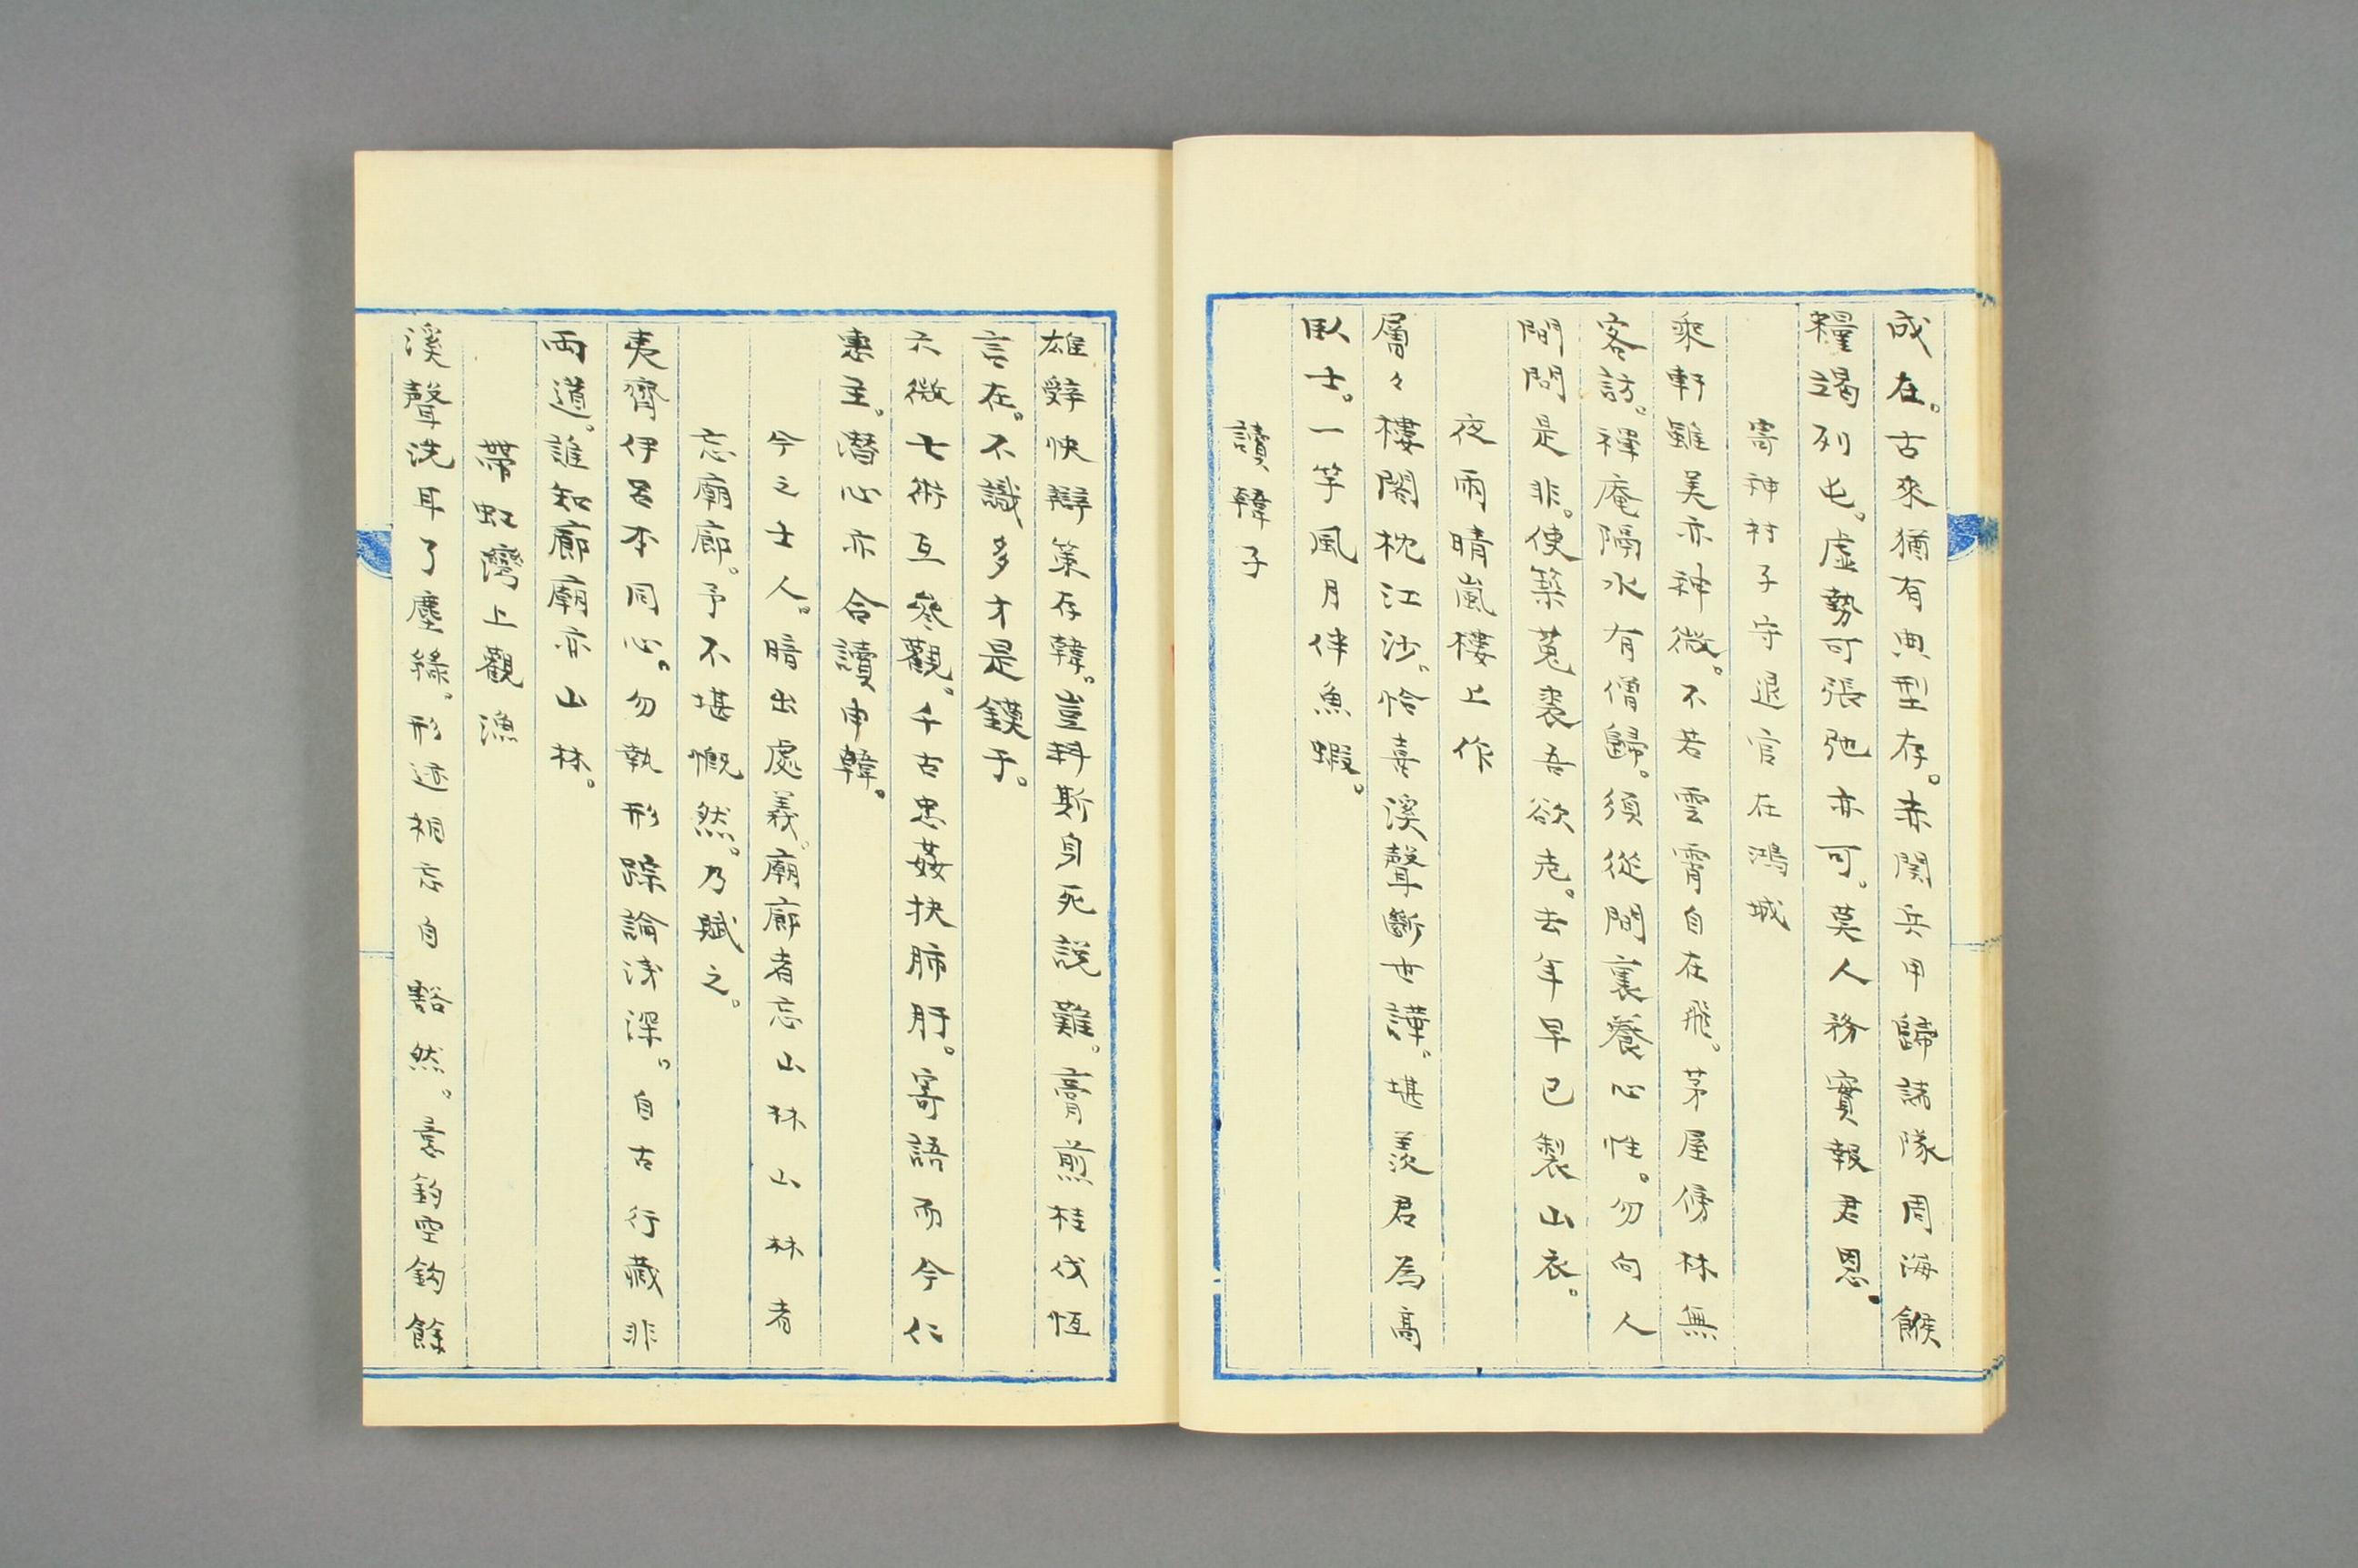 成在。古來猶有典型存。赤関兵甲歸諸隊周海餱
糧竭列屯。虚勢可張弛亦可。莫人務實報君恩。
寄神村子守退官在鴻城
乘軒雖美亦神微。不若雲霄自在飛。茅屋傍林無
客訪。禅庵隔水有僧歸。須從間裏養心性。勿向人
間問是非。使築菟裘吾欲老。去年早已製山衣。
夜雨晴嵐樓上作
層々樓閣枕江沙。恰喜溪聲斷世譁。堪羨君為高
臥士。一竿風月伴魚蝦。
讀韓子
雄辞快辯策存韓。豈料斯身死説難。膏煎桂伐恆
言在。不識多才是鏌于。
六微七術互參觀。千古忠姦抉肺肝。寄語而今仁
惠主。潛心亦合讀申韓。
今之士人。暗出處義。廟廊者忘山林山林者
忘廟廊。予不堪慨然。乃賦之。
夷齊伊呂本同心。勿執形踪論浅深。自古行藏非
両道。誰知廊廟亦山林。
帶虹灣上觀漁
溪聲洗耳了塵緣。形迹相忘自豁然。意釣空鈎餘